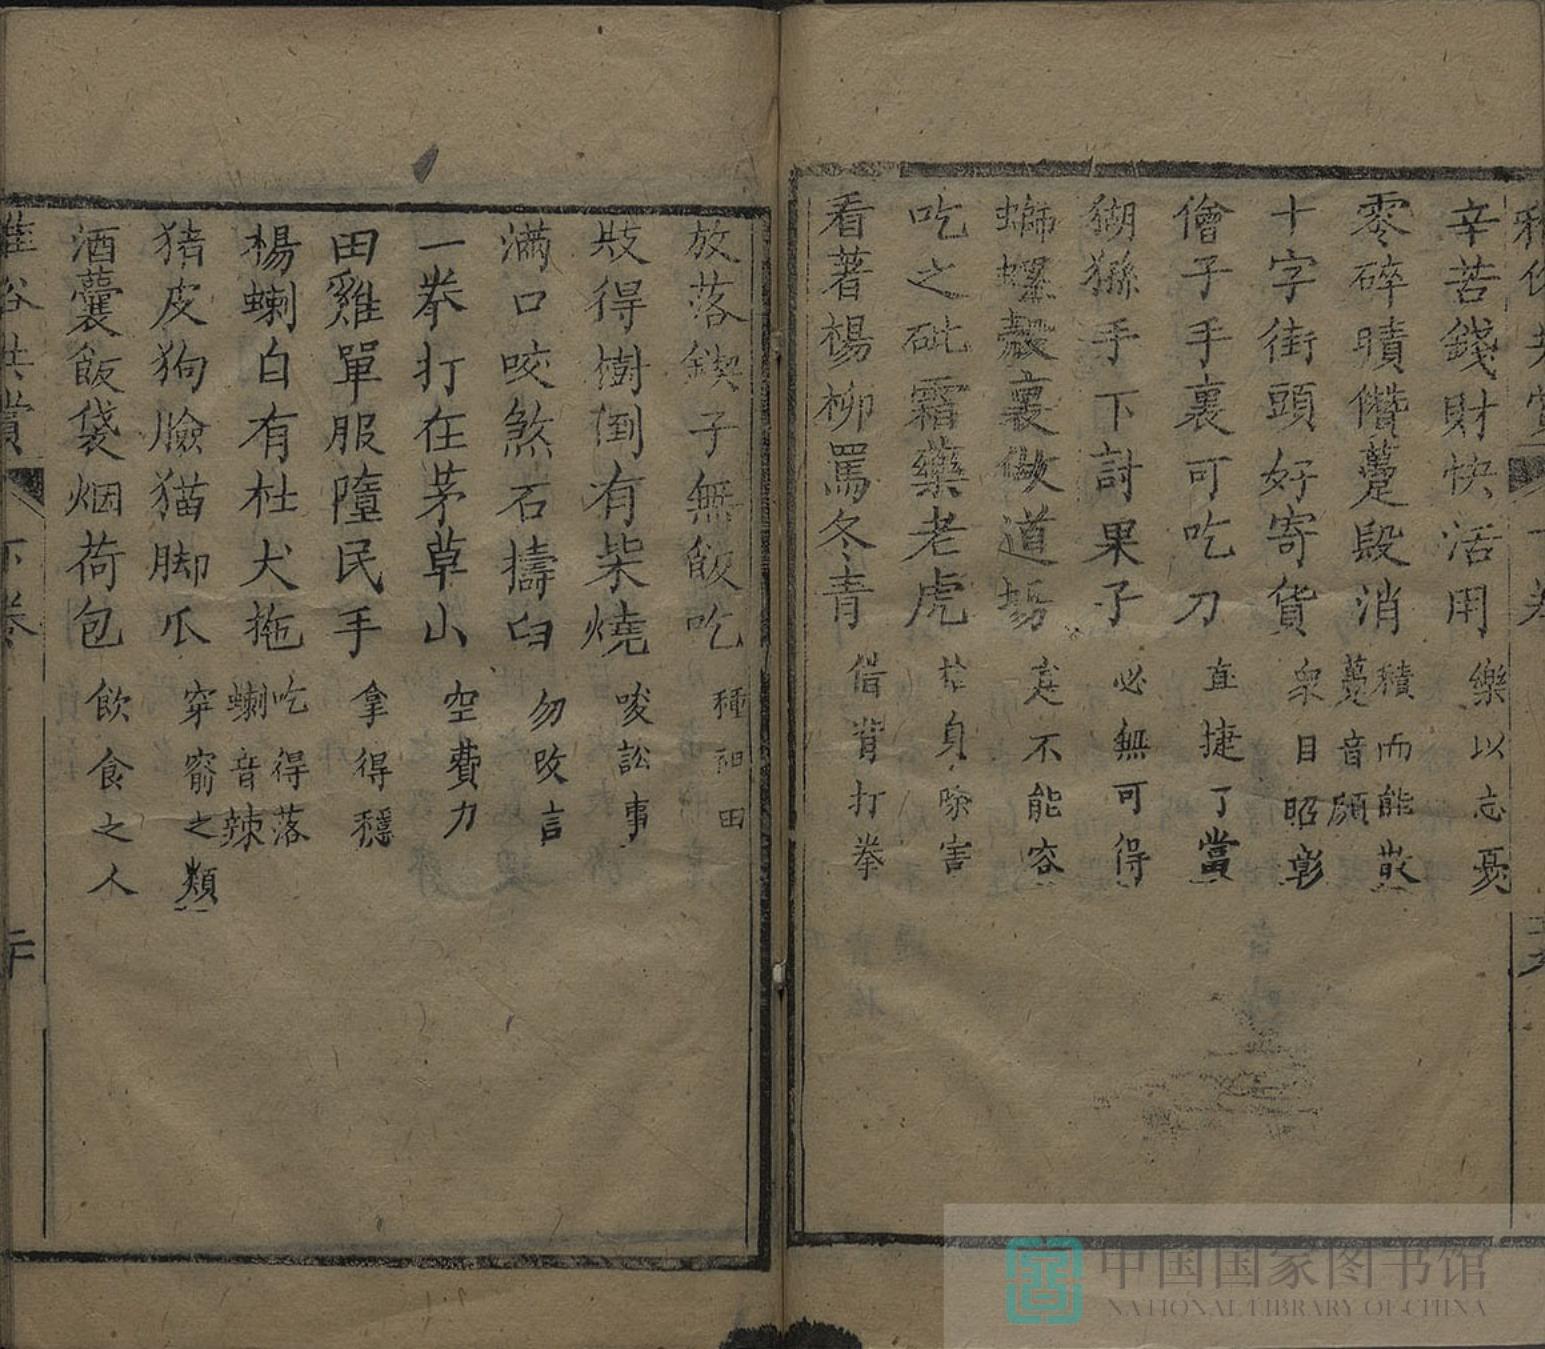 辛苦錢財快活用 樂以忘憂
零碎𧵩儹躉段消 積而能散 躉音頓
十字街頭好寄貨 衆目昭彰
儈子手裏可吃刀 直捷了當
猢猻手下討果子 必無可得
螄螺殼裏做道場 定不能容
吃之砒霜藥老虎 捨身除害
看著楊柳罵冬青 借背打拳
放落鍥子無飯吃 種租田
㩻得樹倒有柴燒 唆訟事
滿口咬煞石擣臼 勿改言
一拳打在茅草山 空費力
田雞單服墮民手 拿得穩
楊蝲白有杜犬拖 吃得落 蝲音辣
猪皮狗臉猫脚爪 穿窬之類
酒囊飯袋烟荷包 飲食之人
雅俗共賞 下卷 二十
中国国家图书馆
NATIONAL LIBRARY OF CHINA